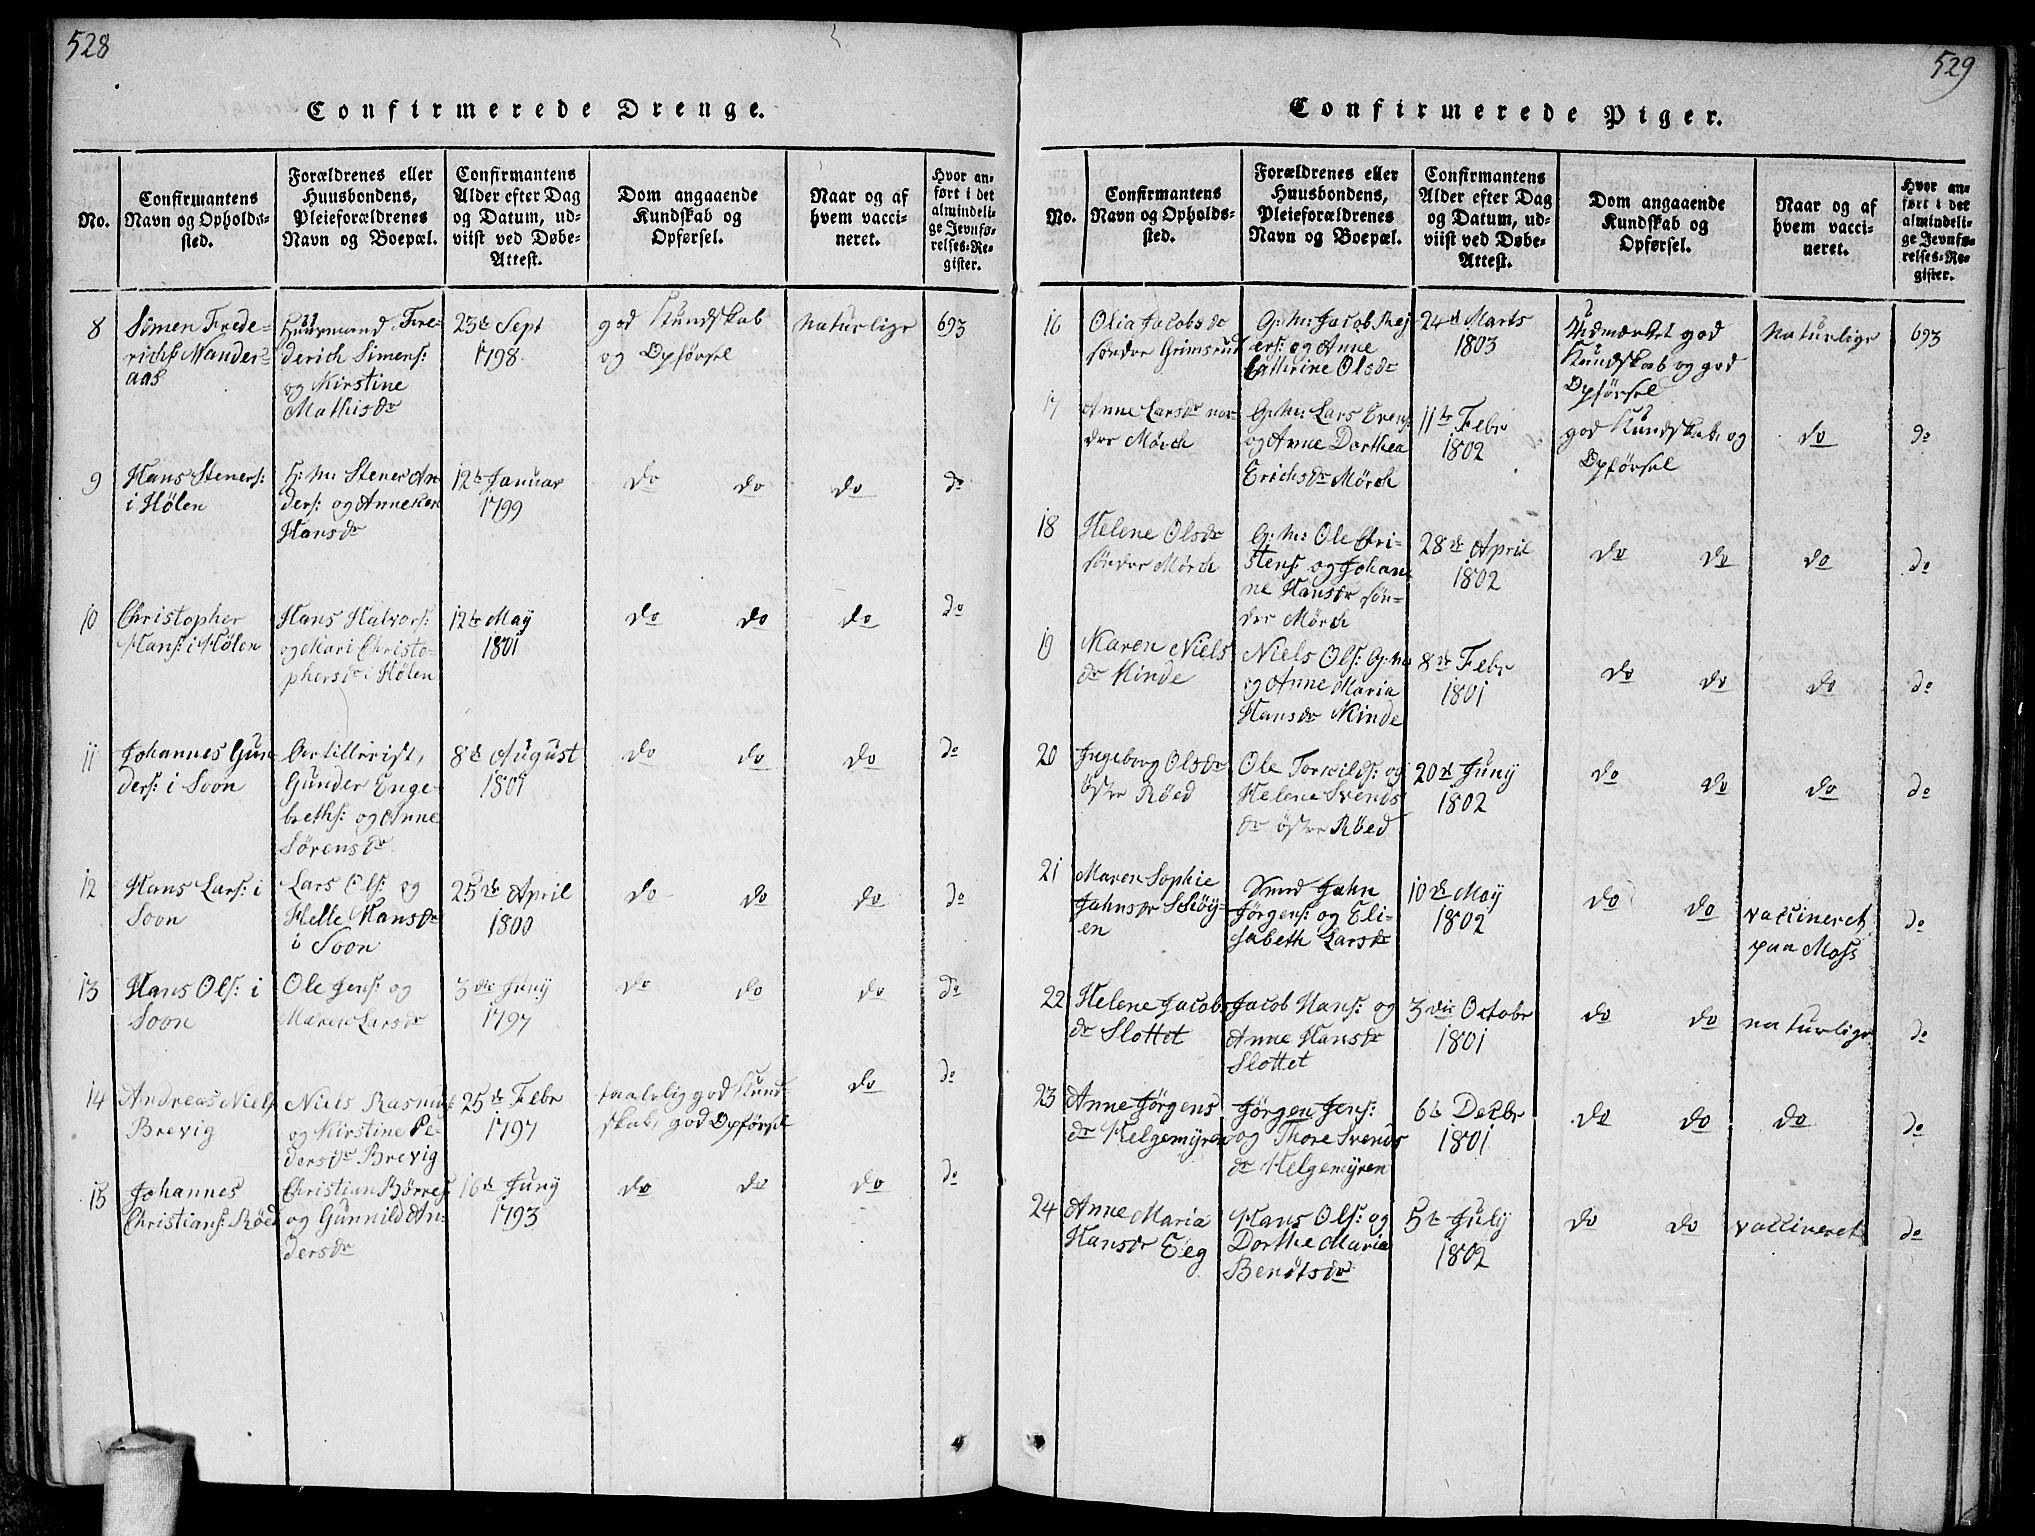 528
Confirmerede Drenge.
No.
Confirmantens
Navn og Opholds-
sted.
Forældrenes eller
Huusbondens,
Pleieforældrenes
Navn og Boepæl.
Confirmantens
Alder efter Dag
og Datum, ud-
viist ved Døbe-
Attest.
Dom angaaende
Kundskab og
Opførsel.
Naar og af
hvem vacci-
neret.
Hvor an-
ført i det
almindeli-
ge Jevnfø-
relses-Re-
gister.
8
Simen Frede-
richs:
aas
Huusmand Fre-
derich Simens:
og Kirstine
Mathisdr
25de Sept
1798
god Kundskab
og Opførsel
naturlige
693
9
Hans Steners:
i Hølen
H: M: Stener An-
ders: og Anne
Hansdr
12te Januar
1799
do do
do
do
10
Christopher
Hans: i Hølen
Hans Halvors:
og Mari Christo-
phersdr i Hølen
12te May
1801
do do
do
do
11
Johannes Gun-
ders: i Soon
Artillerist,
Gunder Enge-
breths: og Anne
Sørensdr
8de August
1801
do do
do
do
12
Hans Lars: i
Soon
Lars Ols: og
Helle Hansdr
i Soon
25de April
1800
do do
do
do
13
Hans Ols: i
Soon
Ole Jens: og
Maren Larsdr
3die Juny
1797
do do
do
do
14
Andreas Niels:
Brevig
Niels Rasmus:
og Kirstine Pe-
dersdr Brevig
25de Febr
1797
taalelig god Kund-
skab, god Opførsel
do
do
15
Johannes
Christians: Røed
Christian Børres:
og Gunnild An-
dersdr
16de Juny
1793
do do
do
do
529
Confirmerede Piger.
No.
Confirmantens
Navn og Opholds-
sted.
Forældrenes eller
Huusbondens,
Pleieforældrenes
Navn og Boepæl.
Confirmantens
Alder efter Dag
og Datum, ud-
viist ved Døbe-
Attest.
Dom angaaende
Kundskab og
Opførsel.
Naar og af
hvem vacci-
neret.
Hvor an-
ført i det
almindeli-
ge Jevnfø-
relses-Re-
gister.
16
Olia Jacobsdr
søndre Grimsrud
G: M: Jacob Rej-
ers: og Anne
Cathrine Olsdr
24de Marts
1803
Udmærket god
Kundskab og god
Opførsel
naturlige
693
17
Anne Larsdr nor-
dre Mørch
G: M: Lars Evens:
og Anne Dorthea
Erichsdr Mørch
11te Febr
1802
god Kundskab og
Opførsel
do
do
18
Helene Olsdr
søndre Mørch
G: M: Ole Cri-
stens: og Johan-
ne Hansdr søn-
dre Mørch
28de April
1802
do do
do
do
19
Karen Niels
dr Kinde
Niels Ols: G: M:
og Anne Maria
Hansdr Kinde
8de Febr
1801
do do
do
do
20
Ingeborg Olsdr
østre Røed
Ole Torkilds: og
Helene Svends
dr østre Røed
20de Juny
1802
do do
do
do
21
Maren Sophie
Jahnsdr Schøy-
en
Jahn
Jørgens: og Eli-
sabeth Larsdr
10de May
1802
do do
vaccineret
paa Moss
do
22
Helene Jacobs
dr Slottet
Jacob Hans: og
Anne Hansdr
Slottet
3die Octobr
1801
do do
naturlige
do
23
Anne Jørgens
dr Helgemyren
Jørgen Jens:
og Thore Svends
dr Helgemyren
6te Decbr
1801
do do
do
do
24
Anne Maria
Hansdr Eeg
Hans Ols: og
Dorthe Maria
Bentsdr
5te July
1802
do do
vaccineret
do